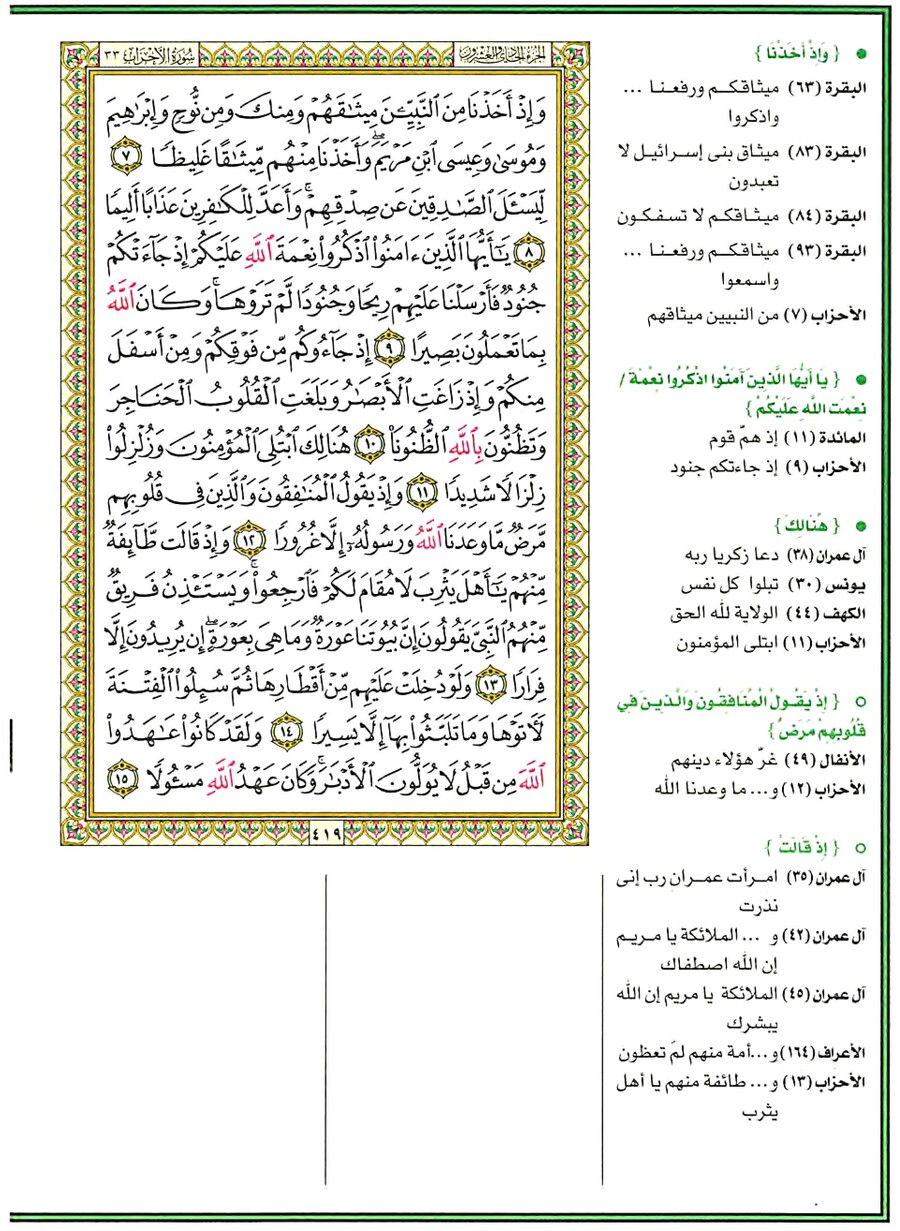 سُورَةُ الأَحْزَابِ ٣٣
الجزء الحادي والعشرون
وَإِذْ أَخَذْنَا مِنَ ٱلنَّبِيِّـۧنَ مِيثَٰقَهُمْ وَمِنكَ وَمِن نُّوحٍ وَإِبْرَٰهِيمَ
وَمُوسَىٰ وَعِيسَى ٱبْنِ مَرْيَمَ ۖ وَأَخَذْنَا مِنْهُم مِّيثَٰقًا غَلِيظًا ٧
لِّيَسْـَٔلَ ٱلصَّٰدِقِينَ عَن صِدْقِهِمْ ۚ وَأَعَدَّ لِلْكَٰفِرِينَ عَذَابًا أَلِيمًا
٨ يَٰٓأَيُّهَا ٱلَّذِينَ ءَامَنُوا۟ ٱذْكُرُوا۟ نِعْمَةَ ٱللَّهِ عَلَيْكُمْ إِذْ جَآءَتْكُمْ
جُنُودٌ فَأَرْسَلْنَا عَلَيْهِمْ رِيحًا وَجُنُودًا لَّمْ تَرَوْهَا ۚ وَكَانَ ٱللَّهُ
بِمَا تَعْمَلُونَ بَصِيرًا ٩ إِذْ جَآءُوكُم مِّن فَوْقِكُمْ وَمِنْ أَسْفَلَ
مِنكُمْ وَإِذْ زَاغَتِ ٱلْأَبْصَٰرُ وَبَلَغَتِ ٱلْقُلُوبُ ٱلْحَنَاجِرَ
وَتَظُنُّونَ بِٱللَّهِ ٱلظُّنُونَا۠ ١٠ هُنَالِكَ ٱبْتُلِىَ ٱلْمُؤْمِنُونَ وَزُلْزِلُوا۟
زِلْزَالًا شَدِيدًا ١١ وَإِذْ يَقُولُ ٱلْمُنَٰفِقُونَ وَٱلَّذِينَ فِى قُلُوبِهِم
مَّرَضٌ مَّا وَعَدَنَا ٱللَّهُ وَرَسُولُهُۥٓ إِلَّا غُرُورًا ١٢ وَإِذْ قَالَت طَّآئِفَةٌ
مِّنْهُمْ يَٰٓأَهْلَ يَثْرِبَ لَا مُقَامَ لَكُمْ فَٱرْجِعُوا۟ ۚ وَيَسْتَـْٔذِنُ فَرِيقٌ
مِّنْهُمُ ٱلنَّبِىَّ يَقُولُونَ إِنَّ بُيُوتَنَا عَوْرَةٌ وَمَا هِىَ بِعَوْرَةٍ ۖ إِن يُرِيدُونَ إِلَّا
فِرَارًا ١٣ وَلَوْ دُخِلَتْ عَلَيْهِم مِّنْ أَقْطَارِهَا ثُمَّ سُئِلُوا۟ ٱلْفِتْنَةَ
لَـَٔاتَوْهَا وَمَا تَلَبَّثُوا۟ بِهَآ إِلَّا يَسِيرًا ١٤ وَلَقَدْ كَانُوا۟ عَٰهَدُوا۟
ٱللَّهَ مِن قَبْلُ لَا يُوَلُّونَ ٱلْأَدْبَٰرَ ۚ وَكَانَ عَهْدُ ٱللَّهِ مَسْـُٔولًا ١٥
٤١٩
● { وَإِذْ أَخَذْنَا }
البقرة (٦٣) ميثاقكم ورفعنا ...
واذكروا
البقرة (٨٣) ميثاق بنى إسرائيل لا
تعبدون
البقرة (٨٤) ميثاقكم لا تسفكون
البقرة (٩٣) ميثاقكم ورفعنا ...
واسمعوا
الأحزاب (٧) من النبيين ميثاقهم
● { يَا أَيُّهَا الَّذِينَ آمَنُوا اذْكُرُوا نِعْمَةَ /
نِعْمَت اللَّهِ عَلَيْكُمْ }
المائدة (١١) إذ همّ قوم
الأحزاب (٩) إذ جاءتكم جنود
● { هُنَالِكَ }
آل عمران (٣٨) دعا زكريا ربه
يونس (٣٠) تبلوا كل نفس
الكهف (٤٤) الولاية لله الحق
الأحزاب (١١) ابتلى المؤمنون
○ { إِذْ يَقُولُ الْمُنَافِقُونَ وَالَّذِينَ فِي
قُلُوبِهِمْ مَرَضٌ }
الأنفال (٤٩) غرّ هؤلاء دينهم
الأحزاب (١٢) و... ما وعدنا الله
○ { إِذْ قَالَتْ }
آل عمران (٣٥) امرأت عمران رب إنى
نذرت
آل عمران (٤٢) و ... الملائكة يا مريم
إن الله اصطفاك
آل عمران (٤٥) الملائكة يا مريم إن الله
يبشرك
الأعراف (١٦٤) و...أمة منهم لمَ تعظون
الأحزاب (١٣) و... طائفة منهم يا أهل
يثرب